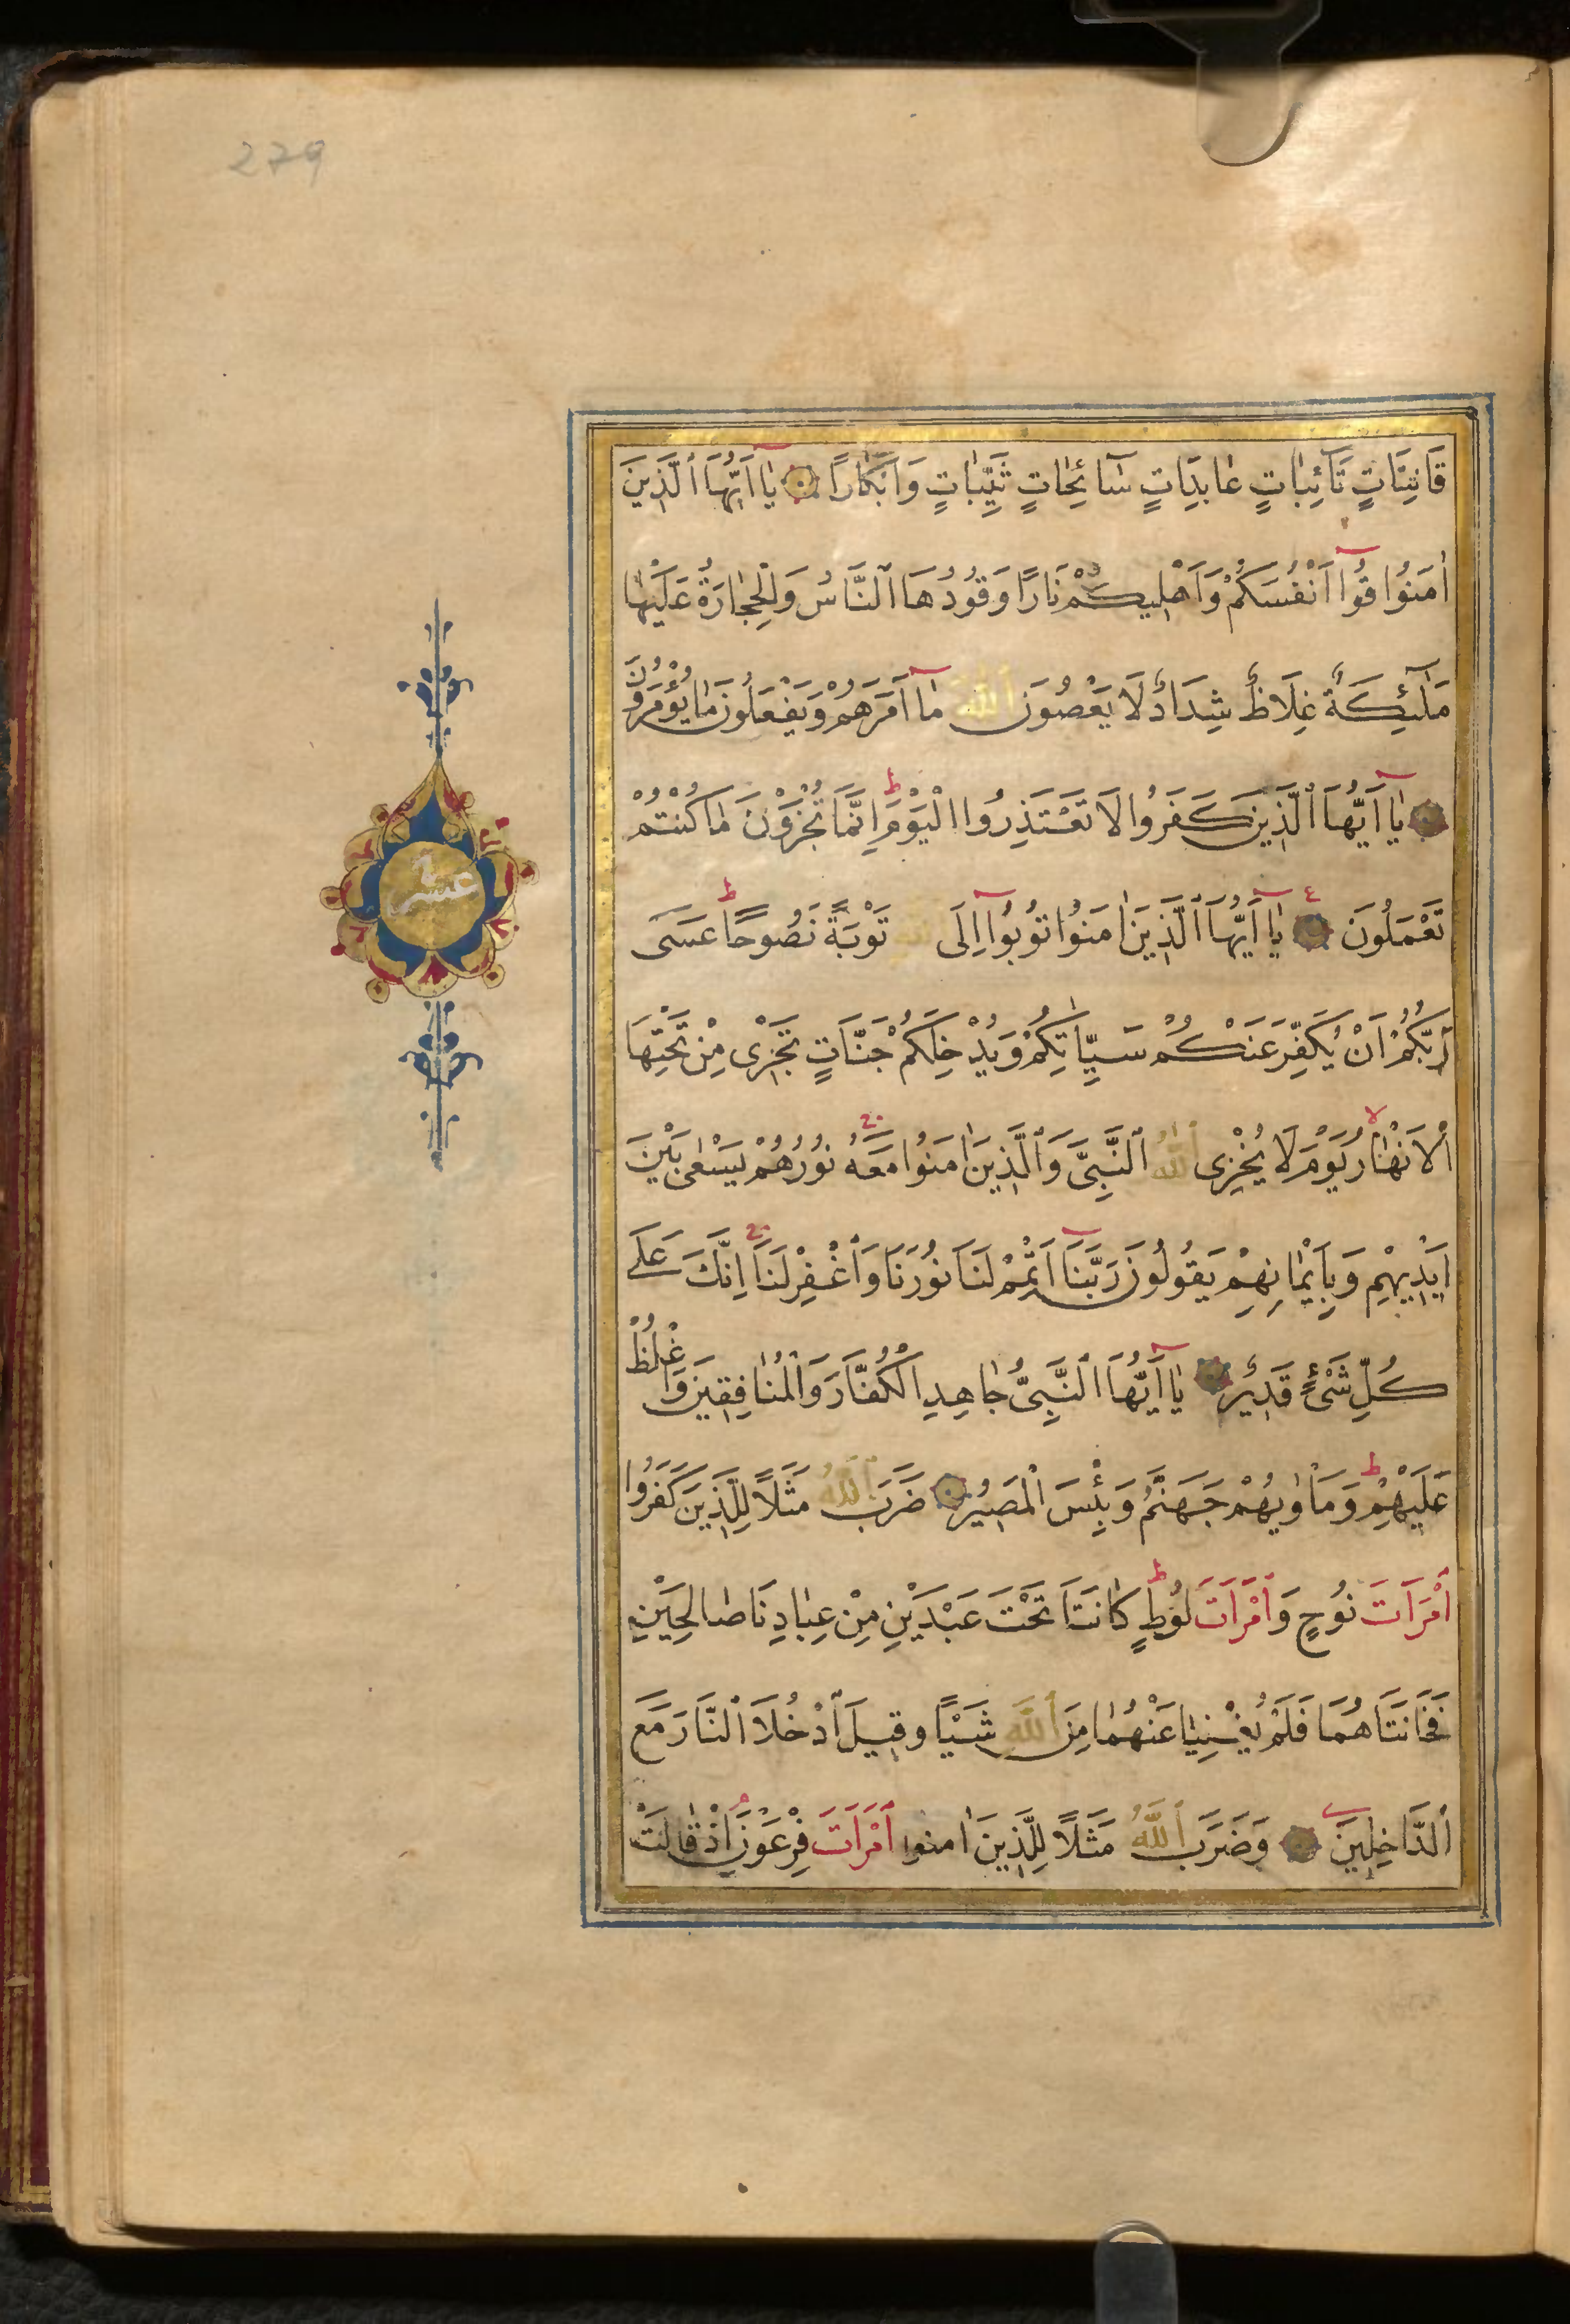 279
قَانِتَاتٍ تَآئِبَاتٍ عَابِدَاتٍ سَآئِحَاتٍ ثَيِّبَاتٍ وَاَبْكَارًا يَآ اَيُّهَا ٱلَّذِينَ
اٰمَنُوا قُوٓا اَنْفُسَكُمْ وَاَهْلِيكُمْ نَارًا وَقُودُهَا ٱلنَّاسُ وَٱلْحِجَارَةُ عَلَيْهَا
مَلٰٓئِكَةٌ غِلَاظٌ شِدَادٌ لَا يَعْصُونَ ٱللّٰهَ مَآ اَمَرَهُمْ وَيَفْعَلُونَ مَا يُؤْمَرُونَ
يَآ اَيُّهَا ٱلَّذِينَ كَفَرُوا لَا تَعْتَذِرُوا ٱلْيَوْمَ ط اِنَّمَا تُجْزَوْنَ مَا كُنْتُمْ
عشر
تَعْمَلُونَ ع يَآ اَيُّهَا ٱلَّذِينَ اٰمَنُوا تُوبُوٓا اِلَى ٱللّٰهِ تَوْبَةً نَصُوحًا ط عَسَى
رَبُّكُمْ اَنْ يُكَفِّرَ عَنْكُمْ سَيِّاٰتِكُمْ وَيُدْخِلَكُمْ جَنَّاتٍ تَجْرِى مِنْ تَحْتِهَا
ٱلْاَنْهَارُ لا يَوْمَ لَا يُخْزِى ٱللّٰهُ ٱلنَّبِىَّ وَٱلَّذِينَ اٰمَنُوا مَعَهُ نُورُهُمْ يَسْعٰى بَيْنَ
اَيْدِيهِمْ وَبِاَيْمَانِهِمْ يَقُولُونَ رَبَّنَآ اَتْمِمْ لَنَا نُورَنَا وَٱغْفِرْ لَنَا اِنَّكَ عَلٰى
كُلِّ شَىْءٍ قَدِيرٌ يَآ اَيُّهَا ٱلنَّبِىُّ جَاهِدِ ٱلْكُفَّارَ وَٱلْمُنَافِقِينَ وَٱغْلُظْ
عَلَيْهِمْ ط وَمَأْوٰيهُمْ جَهَنَّمُ وَبِئْسَ ٱلْمَصِيرُ ضَرَبَ ٱللّٰهُ مَثَلًا لِلَّذِينَ كَفَرُوا
ٱمْرَاَتَ نُوحٍ وَٱمْرَاَتَ لُوطٍ ط كَانَتَا تَحْتَ عَبْدَيْنِ مِنْ عِبَادِنَا صَالِحَيْنِ
فَخَانَتَاهُمَا فَلَمْ يُغْنِيَا عَنْهُمَا مِنَ ٱللّٰهِ شَيْـًٔا وَقِيلَ ٱدْخُلَا ٱلنَّارَ مَعَ
ٱلدَّاخِلِينَ وَضَرَبَ ٱللّٰهُ مَثَلًا لِلَّذِينَ اٰمَنُوا ٱمْرَاَتَ فِرْعَوْنَ م اِذْ قَالَتْ